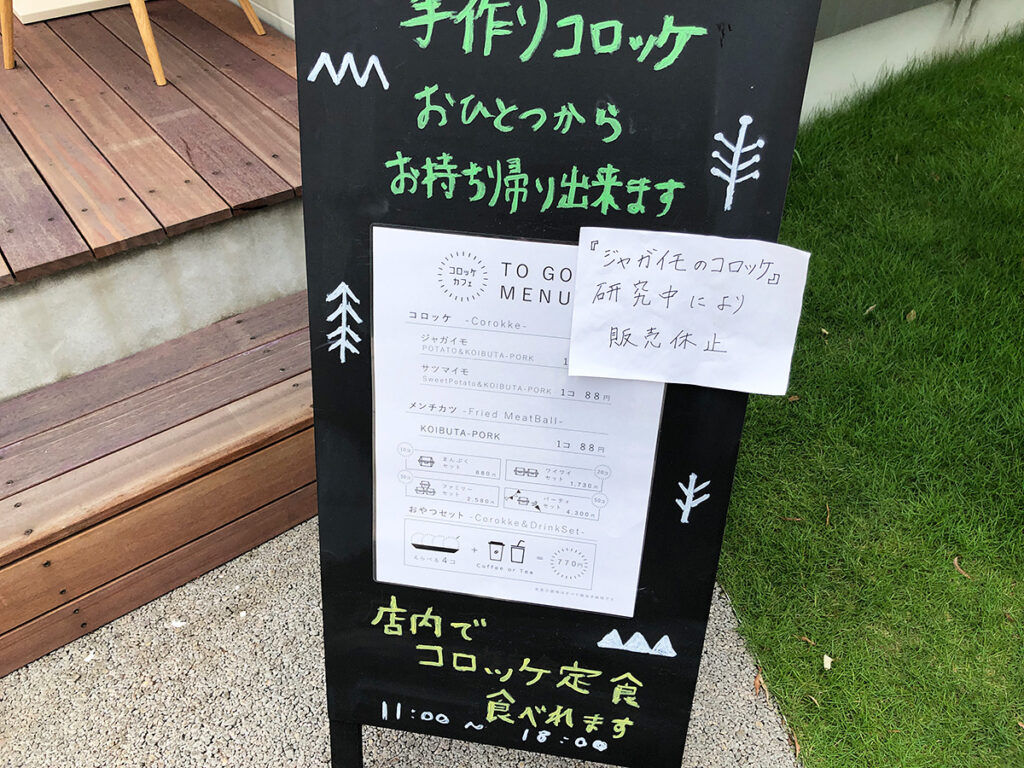 手作りコロッケ
おひとつから
お持ち帰り出来ます
コロッケ
カフェ
TO GO
MENU
『ジャガイモのコロッケ』
研究中により
販売休止
コロッケ -Corokke-
ジャガイモ
POTATO&KOIBUTA-PORK 1
サツマイモ
SweetPotato&KOIBUTA-PORK 1コ 88円
メンチカツ -Fried MeatBall-
KOIBUTA-PORK 1コ 88円
10コ まんぷく
セット 880円
20コ ワイワイ
セット 1,730円
30コ ファミリー
セット 2,580円
50コ パーティ
セット 4,300円
おやつセット -Corokke&DrinkSet-
えらべる 4コ + Coffee or Tea = 770円
店内で
コロッケ定食
食べれます
11:00 ~ 18:00